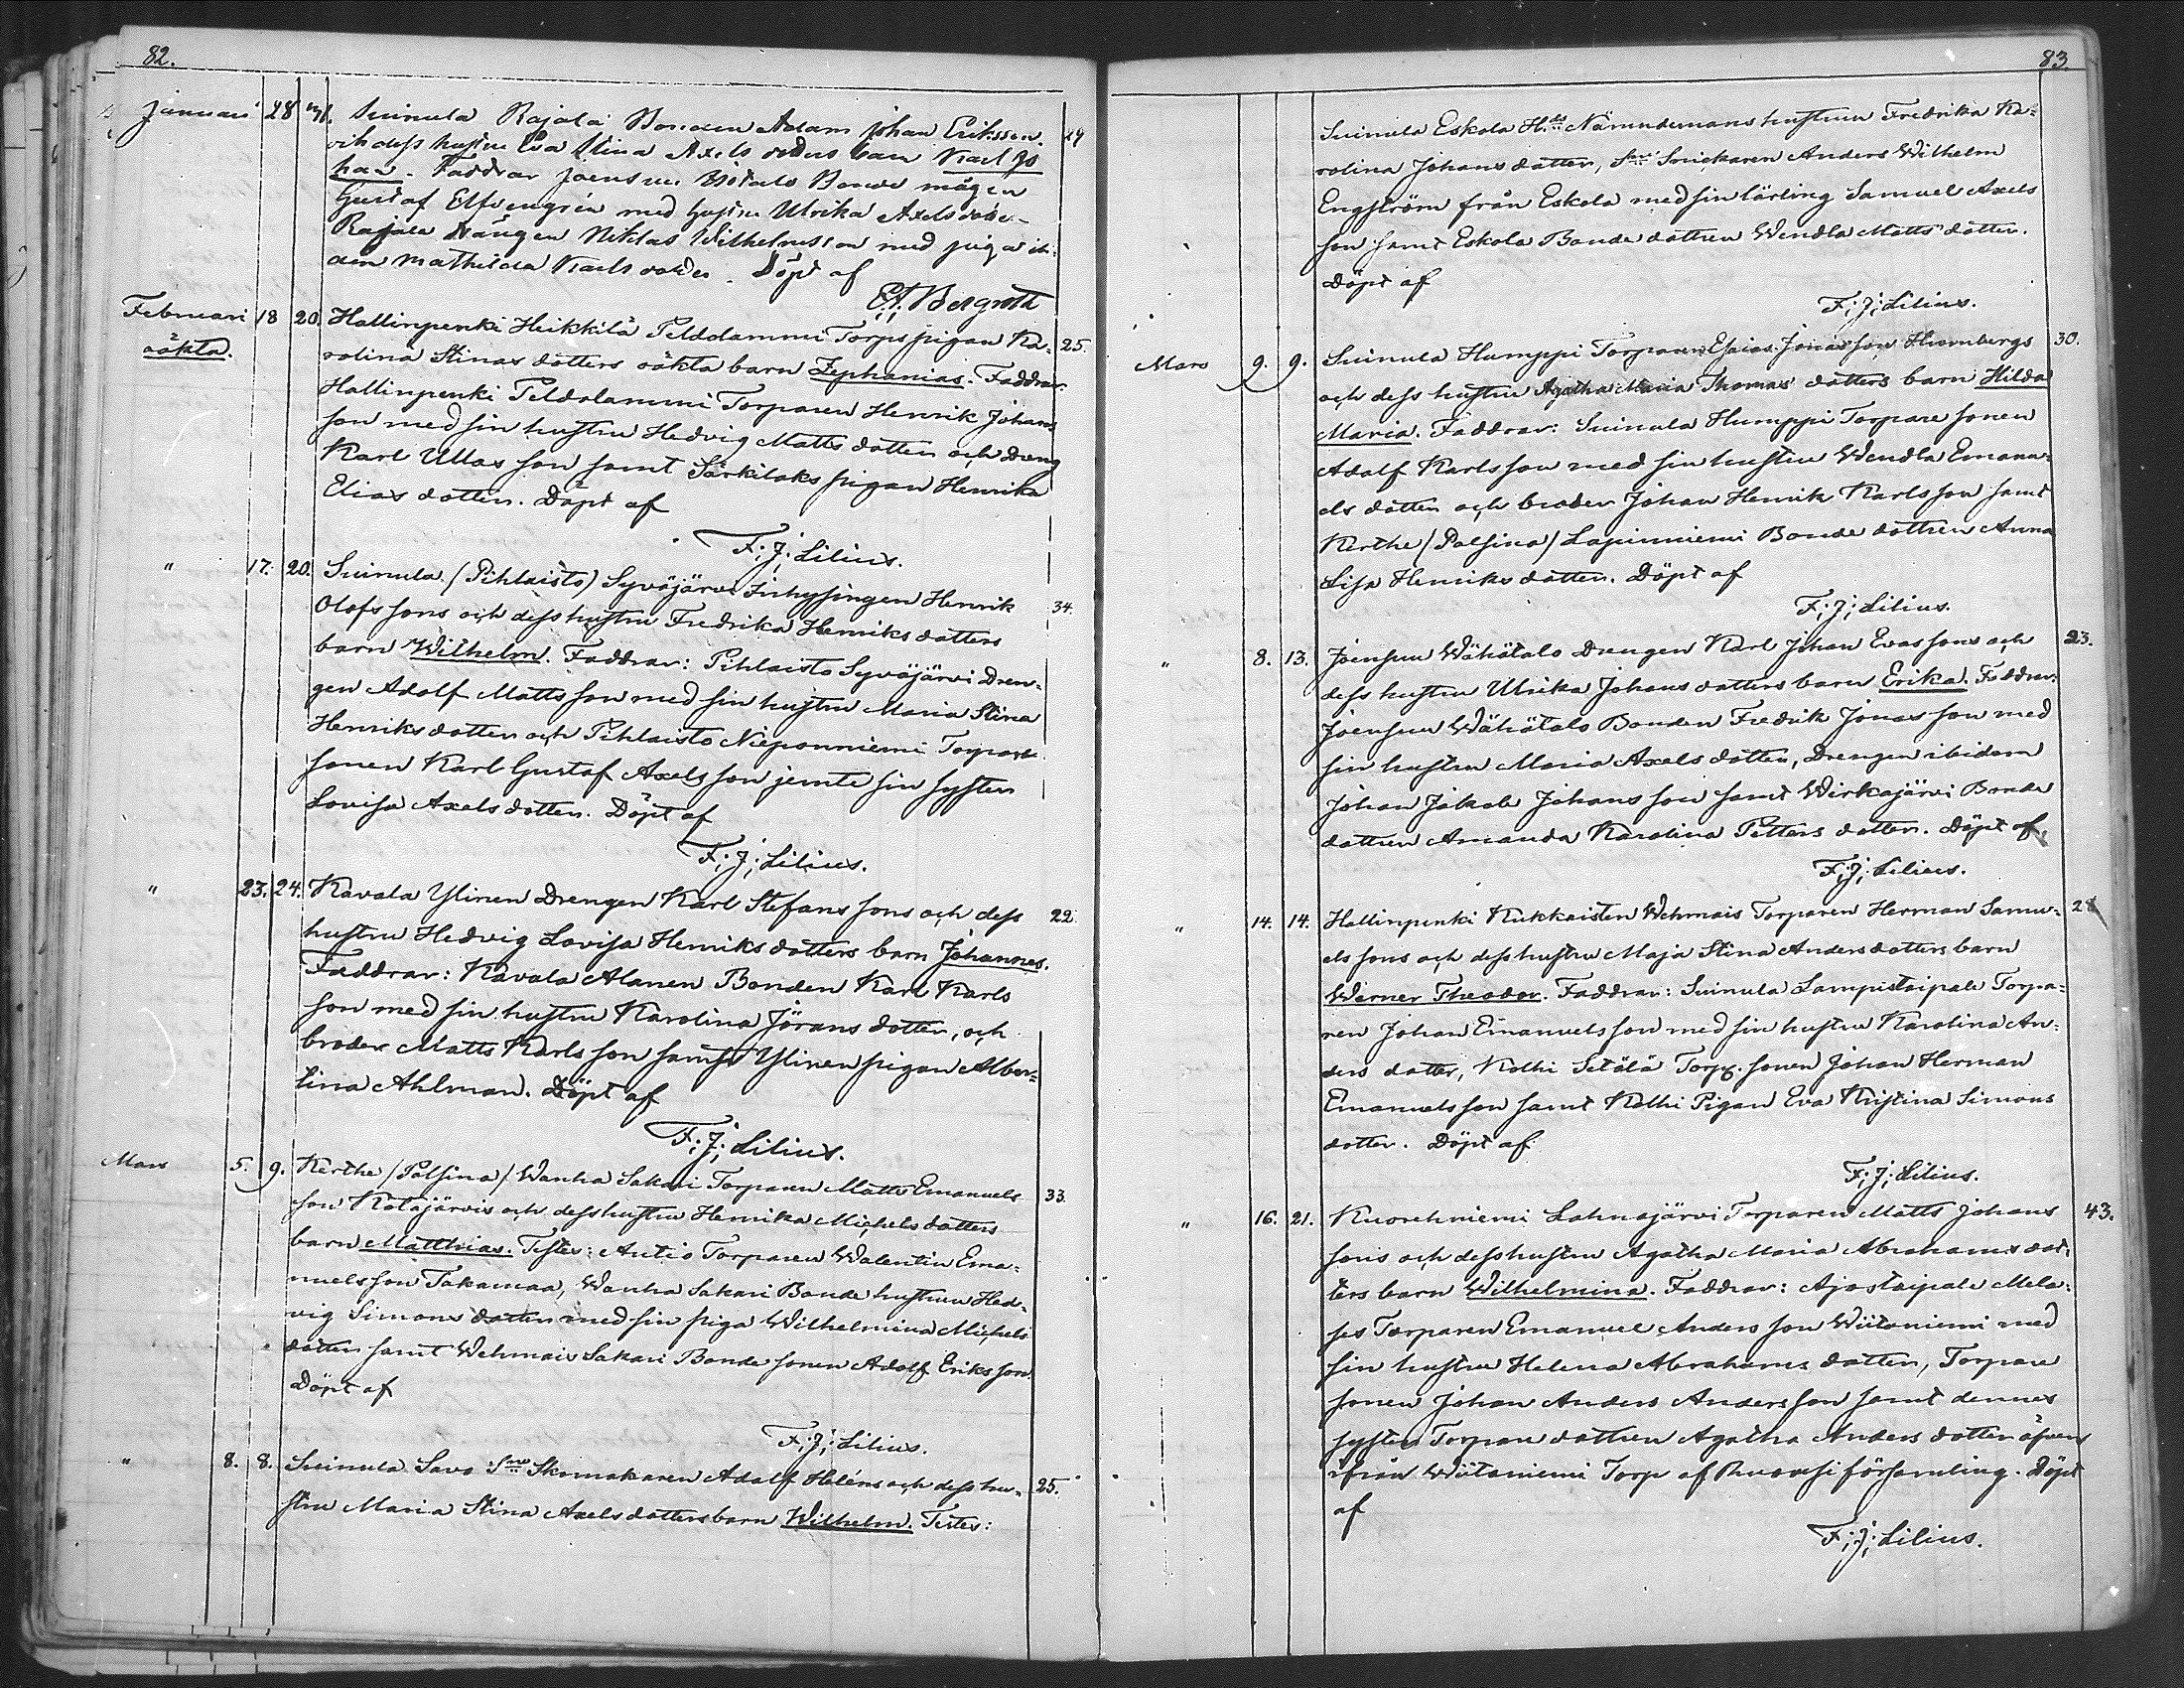 82.
Januari 28 31. Suinula Rajala Bonden Adam Johan Eriksson
och dess hustru Eva Stina Axels dotters barn Karl Jo
han. Faddrar Joensuu Bonde mågen
Gustaf Elfvengrén med hustru Ulrika Axels dotter
Rajala drängen Niklas Wilhelmsson med pigan
Mathilda Karls dotter. Döpt af
Bergroth
Februari 18 20. Hallinpenki Heikkilä Peldolammi Torps pigan Ka- 25.
oäkta. rolina Stinas dotters oäkta barn Zephanias. Faddrar:
Hallinpenki Peldolammi Torparen Henrik Johans
son med sin hustru Hedvig Matts dotter och dreng
Karl Ullas son samt Särkilaks pigan Henrika
Elias dotter. Döpt af
F; J; Lilius.
" 17. 20. Suinula (Pihlaisto) Syväjärvi Inhysingen Henrik 34.
Olofs sons och dess hustru Fredrika Henriks dotters
barn Wilhelm. Faddrar: Pihlaisto Syväjärvi Dren-
gen Adolf Matts son med sin hustru Maria Stina
Henriks dotter och Pihlaisto Nieponniemi Torpare
sonen Karl Gustaf Axels son jemte sin syster
Lovisa Axels dotter. Döpt af
F; J; Lilius.
" 23. 24. Kavala Ylinen Drengen Karl Stefans sons och dess 22.
hustru Hedvig Lovisa Henriks dotters barn Johannes.
Faddrar: Kavala Alanen Bonden Karl Karls
son med sin hustru Karolina Jörans dotter, och
broder Matts Karls son samt Ylinen pigan Alber-
tina Ahlman. Döpt af
F; J; Lilius.
Mars 5. 9. Kerthe /Palsina/ Wanha Sakari Torparen Matts Emanuels 33.
son Kotajärvis och dess hustru Henrika Michels dotters
barn Matthias. Testes: Antio Torparen Walentin Ema-
nuels son Takamaa, Wanha Sakari Bonde hustrun Hed-
vig Simons dotter med sin piga Wilhelmina Michels
dotter samt Wehmais Sakari Bonde sonen Adolf Eriks son
Döpt af
F; J; Lilius.
" 8. 8. Suinula Savo Skomakaren Adolf Heléns och dess hu- 25.
stru Maria Stina Axels dotters barn Wilhelm. Testes:
83.
Suinula Eskola Nämndemans hustrun Fredrika Ka-
rolina Johans dotter, Snickaren Anders Wilhelm
Engström från Eskola med sin lärling Samuel Axels
son samt Eskola Bonde dottren Wendla Matts dotter.
Döpt af
F; J; Lilius.
Mars 9. 9. Suinula Humppi Torparen Esaias Jonas son Hurnbergs 30.
och dess hustru Agatha Maria Thomas dotters barn Hilda
Maria. Faddrar: Suinula Humppi Torpare sonen
Adolf Karls son med sin hustru Wendla Emanu-
els dotter och broder Johan Henrik Karls son samt
Kerthe /Palsina/ Lapinniemi Bonde dottren Anna
Lisa Henriks dotter. Döpt af
F; J; Lilius.
" 8. 13. Joensuu Wähätalo Drengen Karl Johan Evas sons och 23.
dess hustru Ulrika Johans dotters barn Erika. Faddrar:
Joensuu Wähätalo Bonden Fredrik Jonas son med
sin hustru Maria Axels dotter, Drengen ibidem
Johan Jakob Johans son samt Wirkajärvi Bonde
dottren Amanda Karolina Petters dotter. Döpt af
F; J; Lilius.
" 14. 14. Hallinpenki Kukkaisten Wehmais Torparen Herman Samu- 28
els sons och dess hustru Maja Stina Anders dotters barn
Werner Theodor. Faddrar: Suinula Lampistaipale Torpa-
ren Johan Emanuels son med sin hustru Karolina An-
ders dotter, Kolhi Setälä Torp. sonen Johan Herman
Emanuels son samt Kolhi Pigan Eva Kristina Simons
dotter. Döpt af
F; J; Lilius.
" 16. 21. Kuorehniemi Lahnajärvi Torparen Matts Johans 43.
sons och dess hustru Agatha Maria Abrahams dot-
ters barn Wilhelmina. Faddrar: Ajostaipale Mela-
ses Torparen Emanuel Anders son Wiitaniemi med
sin hustru Helena Abrahams dotter, Torpare
sonen Johan Anders Anders son samt dennes
syster Torpare dottren Agatha Anders dotter äfven
ifrån Wiitaniemi Torp af Ruovesi församling. Döpt
af
F; J; Lilius.